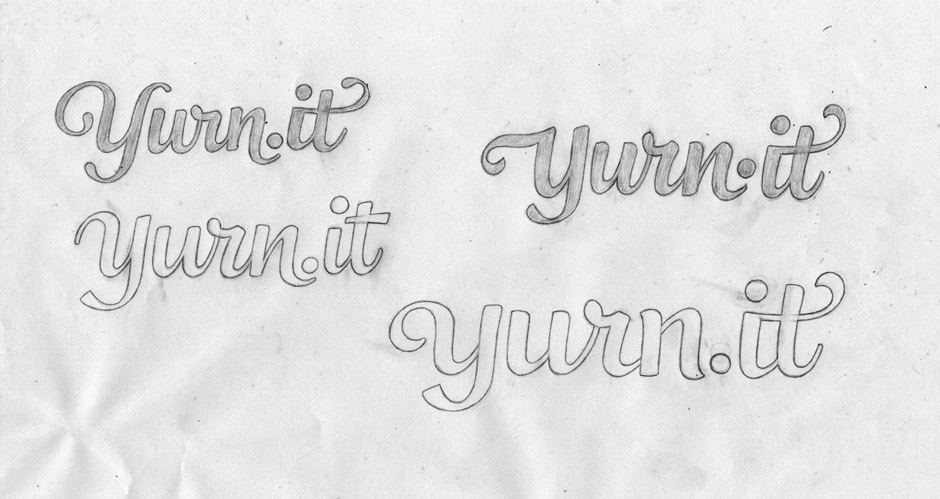 Yurn.it
Yurn.it
Yurn.it
Yurn.it